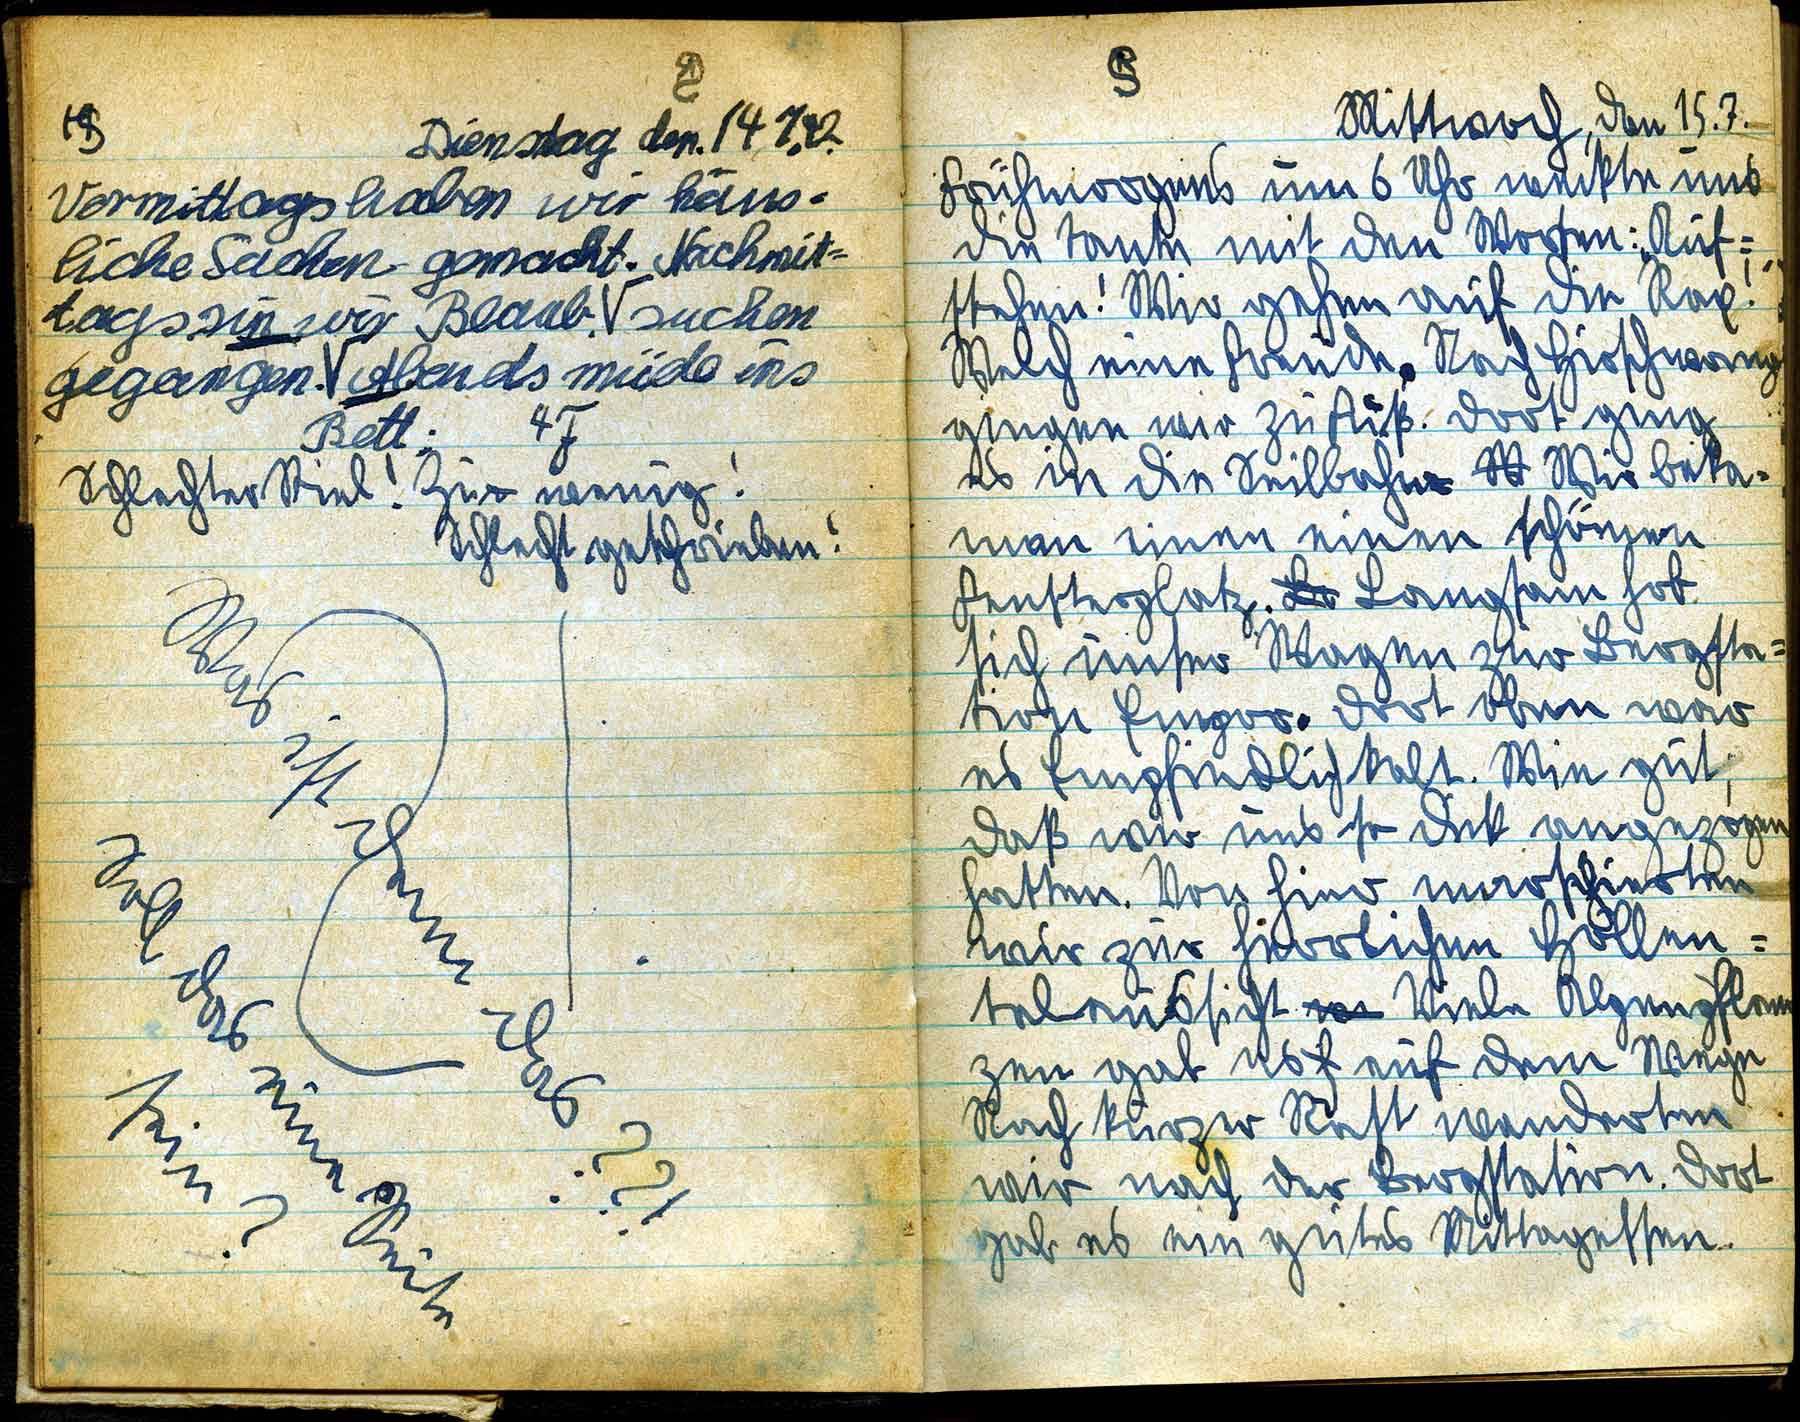 Dienstag den. 14.7.42.
Vormittags haben wir häus-
liche Sachen gemacht. Nachmit=
tags sin wir Blaub. √ suchen
gegangen. √ Abends müde ins
Bett. 4F
Schlechter Stiel! Zu wenig!
Schlecht geschrieben!
Was ist denn das ??!
Soll das eine Seite
sein?
Mittwoch, den 15.7.
Frühmorgens um 6 Uhr weckte uns
die Tante mit den Worten: „Auf=
stehen! Wir gehen auf die Rax!"
Welch eine Freude. Nach Hirschwang
gingen wir zu Fuß. Dort ging
es in die Seilbahn. Wir beka=
men einen einen schönen
Fensterplatz. Langsam hob
sich unser Wagen zur Bergsta=
tion Empor. Dort oben war
es Empfindlich kalt. Wie gut,
daß wir uns so dick angezogen
hatten. Von hier marschierten
wir zur herrlichen Höllen=
talaussicht Viele Alpenpflan
zen gab es auf dem Wege
Nach kurzer Rast wanderten
wir nach der Bergstation. Dort
gab es ein gutes Mittagessen.